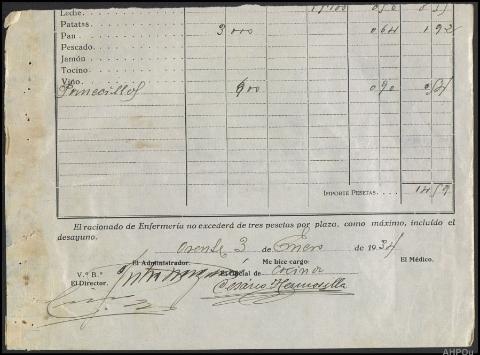 Leche
Patatas
Pan 3 000 0.64 1 92
Pescado
Jamón
Tocino
Vino
Panecillos 6 00 0 90 54
IMPORTE PESETAS 14 59
El racionado de Enfermería no excederá de tres pesetas por plaza, como máximo, incluído el
desayuno.
Orense 3 de Enero de 1934
El Administrador. Me hice cargo: El Médico.
V.º B.º El Oficial de cocina
El Director. Cesáreo Hermosilla
AHPOu